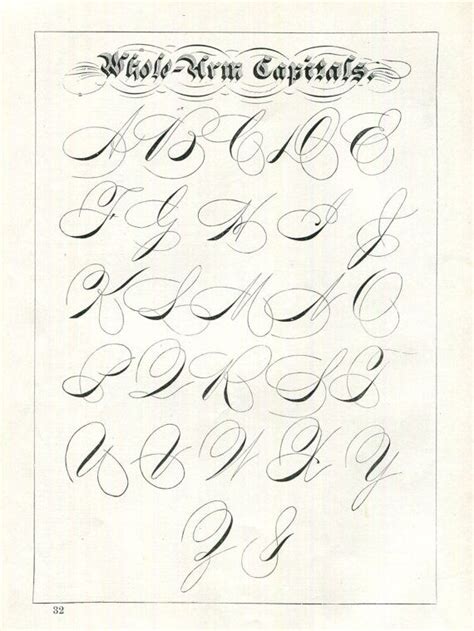 Whole-Arm Capitals.
A B C D E
F G H I J
K L M N O
P Q R S T
U V W X Y
Z &
32